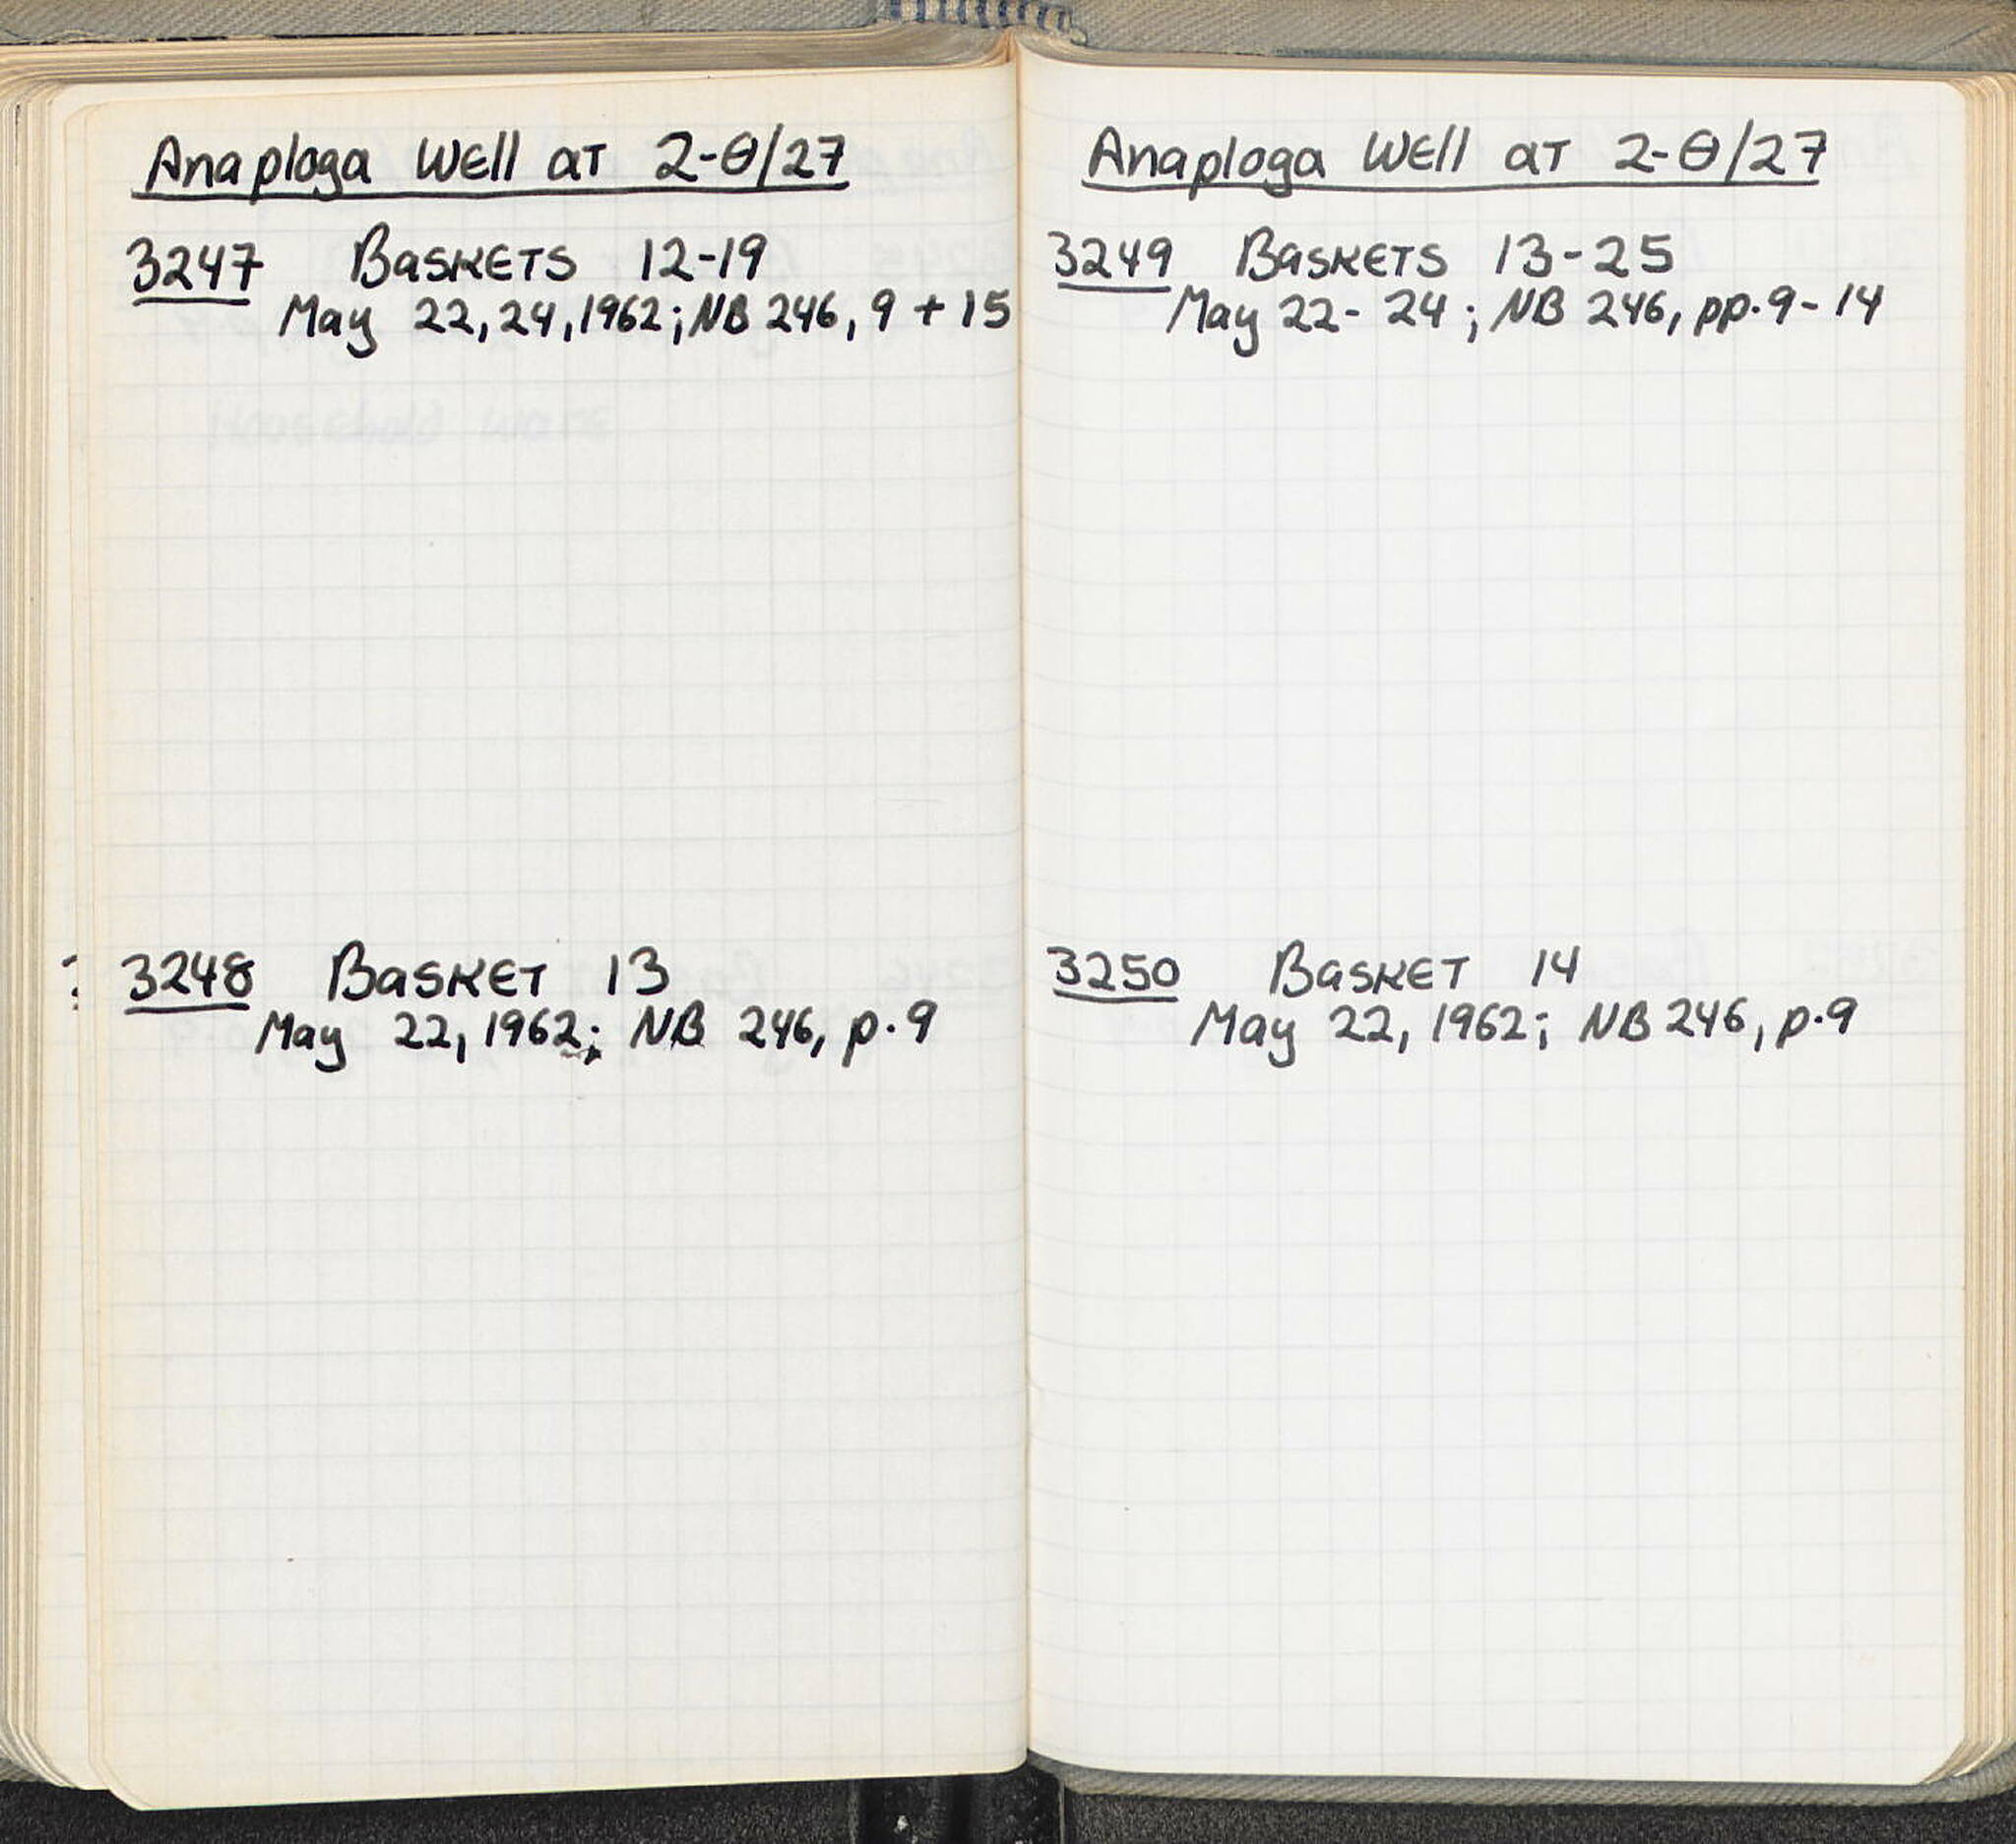 Anaploga Well at 2-Θ/27
3247 Baskets 12-19
May 22, 24, 1962; NB 246, 9 + 15
3248 Basket 13
May 22, 1962; NB 246, p. 9
Anaploga Well at 2-Θ/27
3249 Baskets 13-25
May 22- 24; NB 246, pp. 9-14
3250 Basket 14
May 22, 1962; NB 246, p. 9